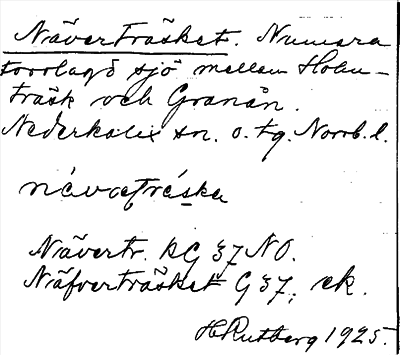 Näverträsket. Numera
torrlagd sjö mellan Holm-
träsk och Granån.
Nederkalix sn. o. tg. Norrb. l.
Nävertr. RG 37 NO.
Näfverträsket G 37, ek.
H Rutberg 1925.